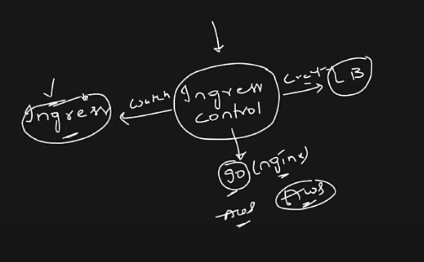 Ingress
watch
Ingress
control
create
LB
go (nginx)
AWS
AWS